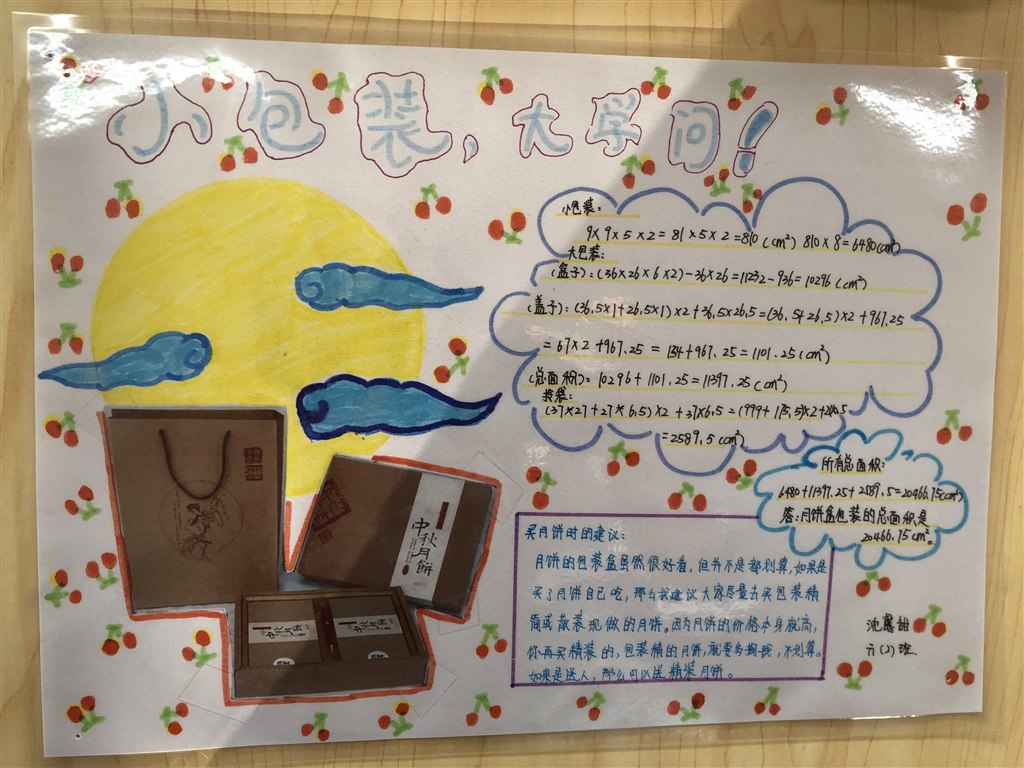 小包装,大学问!
小包装:
9×9×5×2=81×5×2=810(cm²) 810×8=6480(cm²)
大包装:
(盒子):(36×26×6×2)-36×26=11232-936=10296(cm²)
(盖子):(36.5×1+26.5×1)×2+36.5×26.5=(36.5+26.5)×2+967.25
=67×2+967.25=134+967.25=1101.25(cm²)
(总面积):10296+1101.25=11397.25(cm²)
(37×27+27×6.5)×2+37×6.5=(999+
=2589.5(cm²)
所有总面积:
6480+11397.25+2589.5=20466.75(cm²)
答:月饼盒包装的总面积是
20466.75cm²。
中秋月饼
中秋月饼
中秋月饼
买月饼时的建议:
月饼的包装盒虽然很好看,但并不是都划算,如果是
买了月饼自己吃,那么我建议大家尽量去买包装精
简或散装现做的月饼。因为月饼的价格本身就高,
你再买精装的,包装精的月饼,就更为 不划算。
如果是送人,那么可以送精装月饼。
沈
六(2)班